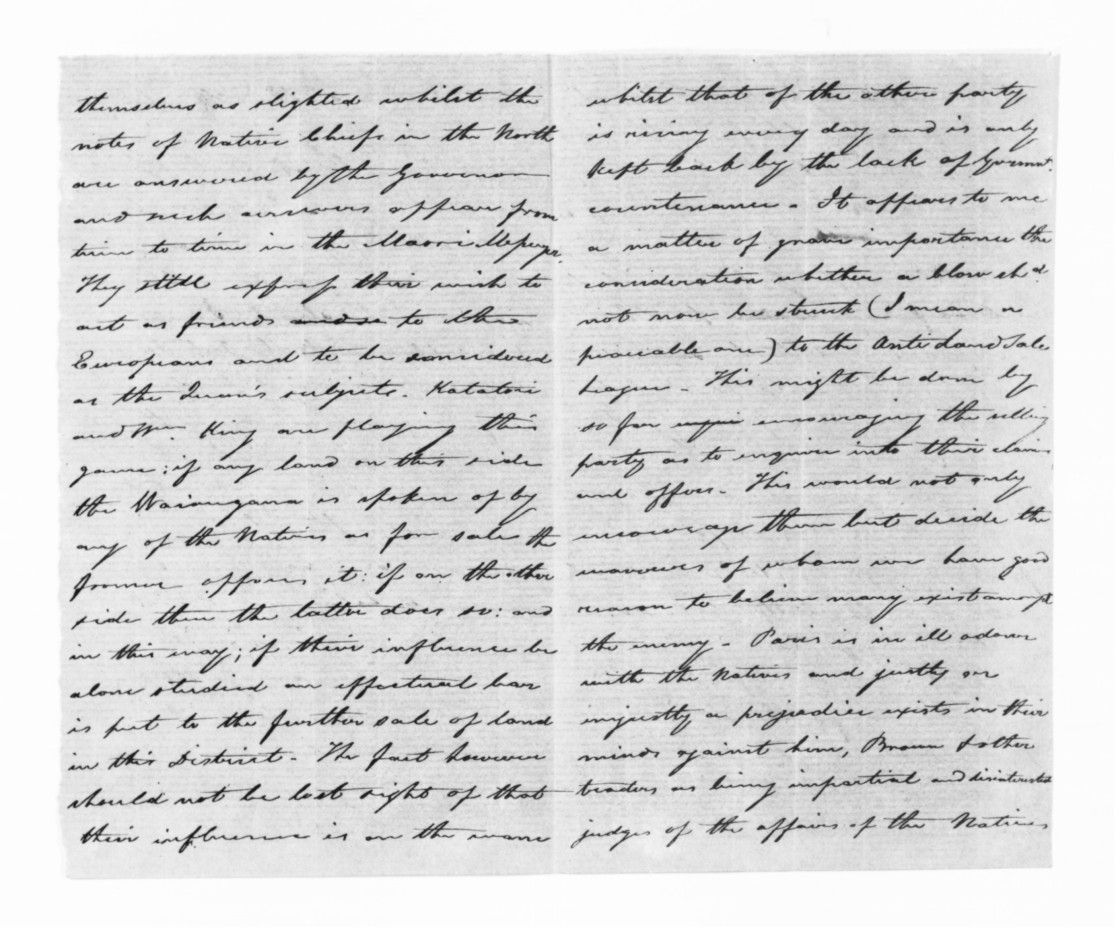 themselves as slighted whilst the
notes of Native Chiefs in the North
are answered by the Governor
and such answers appear from
time to time in the Maori Messenger.
They still express their wish to
act as friends to the
Europeans and to be considered
as the Queen's subjects. Katatori
and Wm. King are playing this
game; if any land on this side
the Waiongana is spoken of by
any of the Natives as for sale the
former offers it: if on the other
side then the latter does so: and
in this way; if their influence be
alone studied an effectual bar
is put to the further sale of land
in this District. The fact however
should not be lost sight of that
their influence is on the wane
whilst that of the other party
is rising every day and is only
kept back by the lack of Govrmt.
countenance. It appears to me
a matter of grave importance the
consideration whether a blow shd.
not now be struck (I mean a
peaceable one) to the Anti Land Sale
League. This might be done by
so far encouraging the selling
party as to enquire into their claims
and offers. This would not only
encourage them but decide the
waverers of whom we have good
reason to believe many exist amongst
the enemy. Paris is in ill odour
with the Natives and justly or
unjustly a prejudice exists in their
minds against him, Brown & other
traders as being impartial and disinterested
judges of the affairs of the Natives